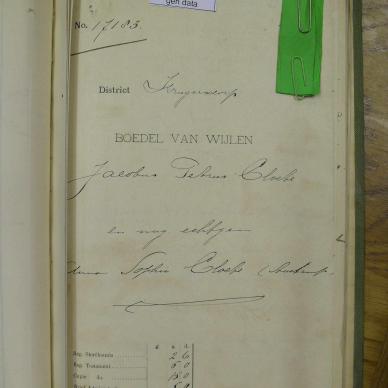 gen data
No. 17183.
District Krugersdorp
BOEDEL VAN WIJLEN
Jacobus Petrus Cloete
en nog echtgen
Anna Sophia Cloete
£ s. d.
Reg. Sterfkennis 2 6
Reg. Testament 5 0
Copie do.